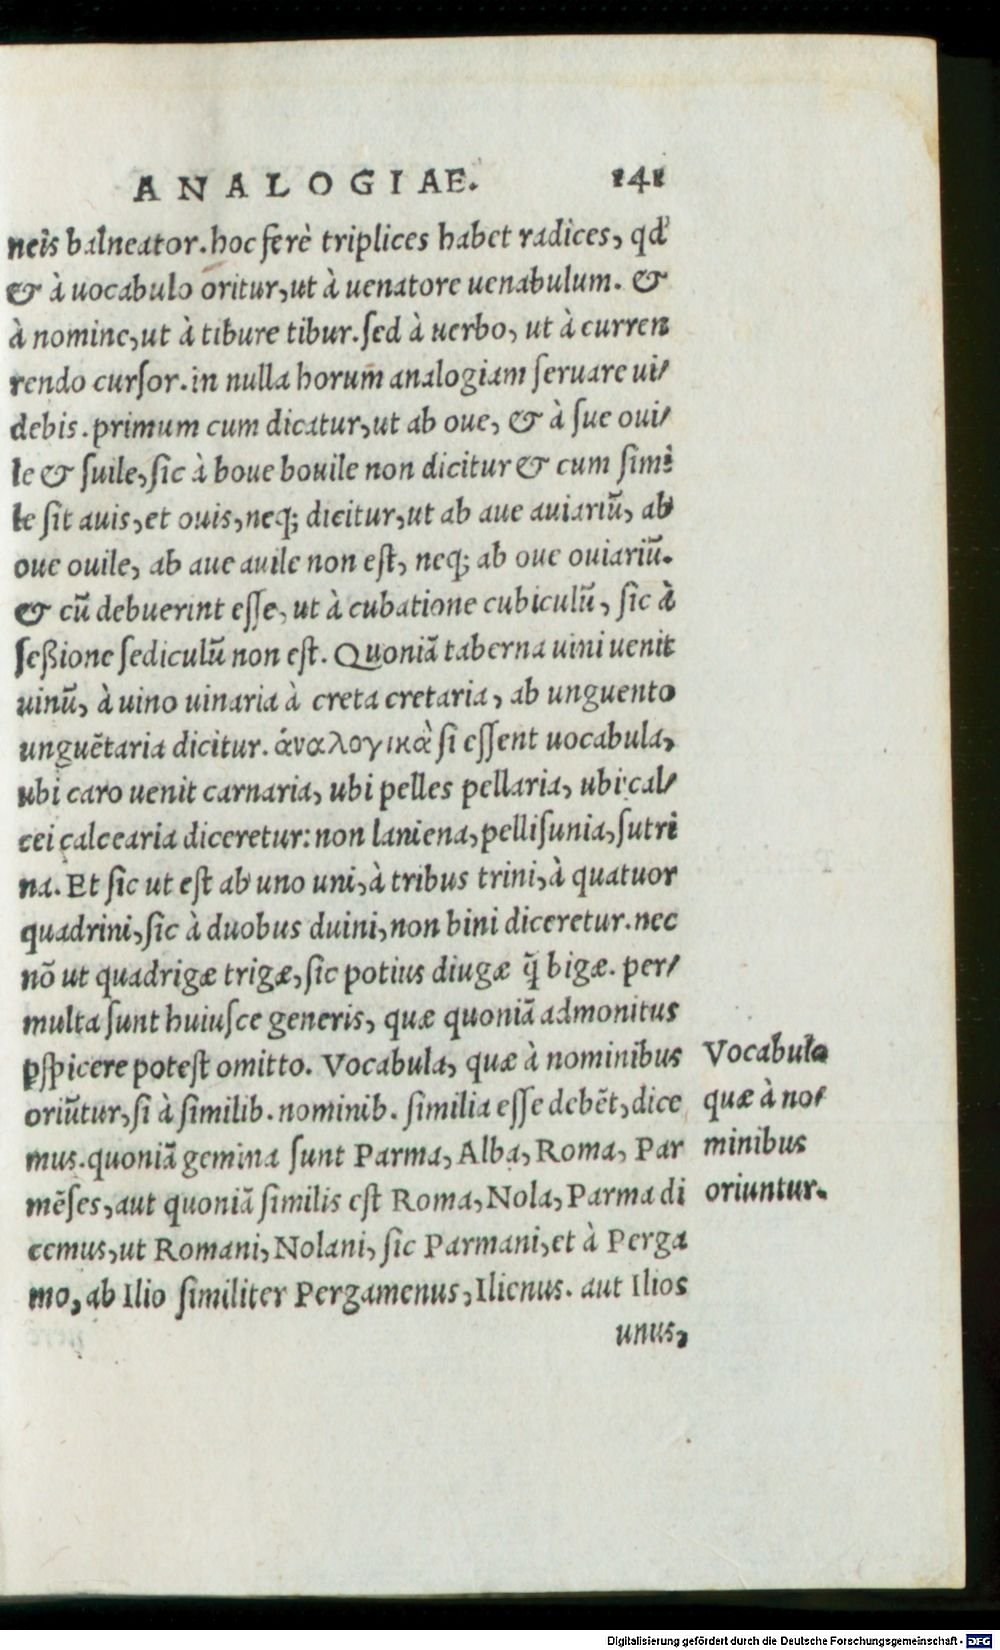 ANALOGIAE. 141
neis balneator. hoc ferè triplices habet radices, qd'
& à uocabulo oritur, ut à uenatore uenabulum. &
à nomine, ut à tibure tibur. sed à uerbo, ut à curren
rendo cursor. in nulla horum̃ analogiam seruare ui/
debis. primum cum dicatur, ut ab oue, & à sue oui/
le & suile, sic à boue bouile non dicitur & cum simi
le sit auis, et ouis, neq; dicitur, ut ab aue auiariũ, ab
oue ouile, ab aue auile non est, neq; ab oue ouiariũ.
& cũ debuerint esse, ut à cubatione cubiculũ, sic à
seßione sediculũ non est. Quoniã taberna uini uenit
uinũ, à uino uinaria à creta cretaria, ab unguento
unguẽtaria dicitur. ἀναλογικὰ si essent uocabula,
ubi caro uenit carnaria, ubi pelles pellaria, ubi cal/
cei calcearia diceretur: non laniena, pellisunia, sutri
na. Et sic ut est ab uno uni, à tribus trini, à quatuor
quadrini, sic à duobus duini, non bini diceretur. nec
nõ ut quadrigæ trigæ, sic potius diugæ q̃ bigæ. per/
multa sunt huiusce generis, quæ quoniã admonitus
ꝑspicere potest omitto. Vocabula, quæ à nominibus
oriũtur, si à similib. nominib. similia esse debẽt, dice
mus. quoniã gemina sunt Parma, Alba, Roma, Par
mẽses, aut quoniã similis est Roma, Nola, Parma di
cemus, ut Romani, Nolani, sic Parmani, et à Perga
mo, ab Ilio similiter Pergamenus, Ilienus. aut Ilios
unus,
Vocabula
quæ à no/
minibus
oriuntur.
Digitalisierung gefördert durch die Deutsche Forschungsgemeinschaft - DFG